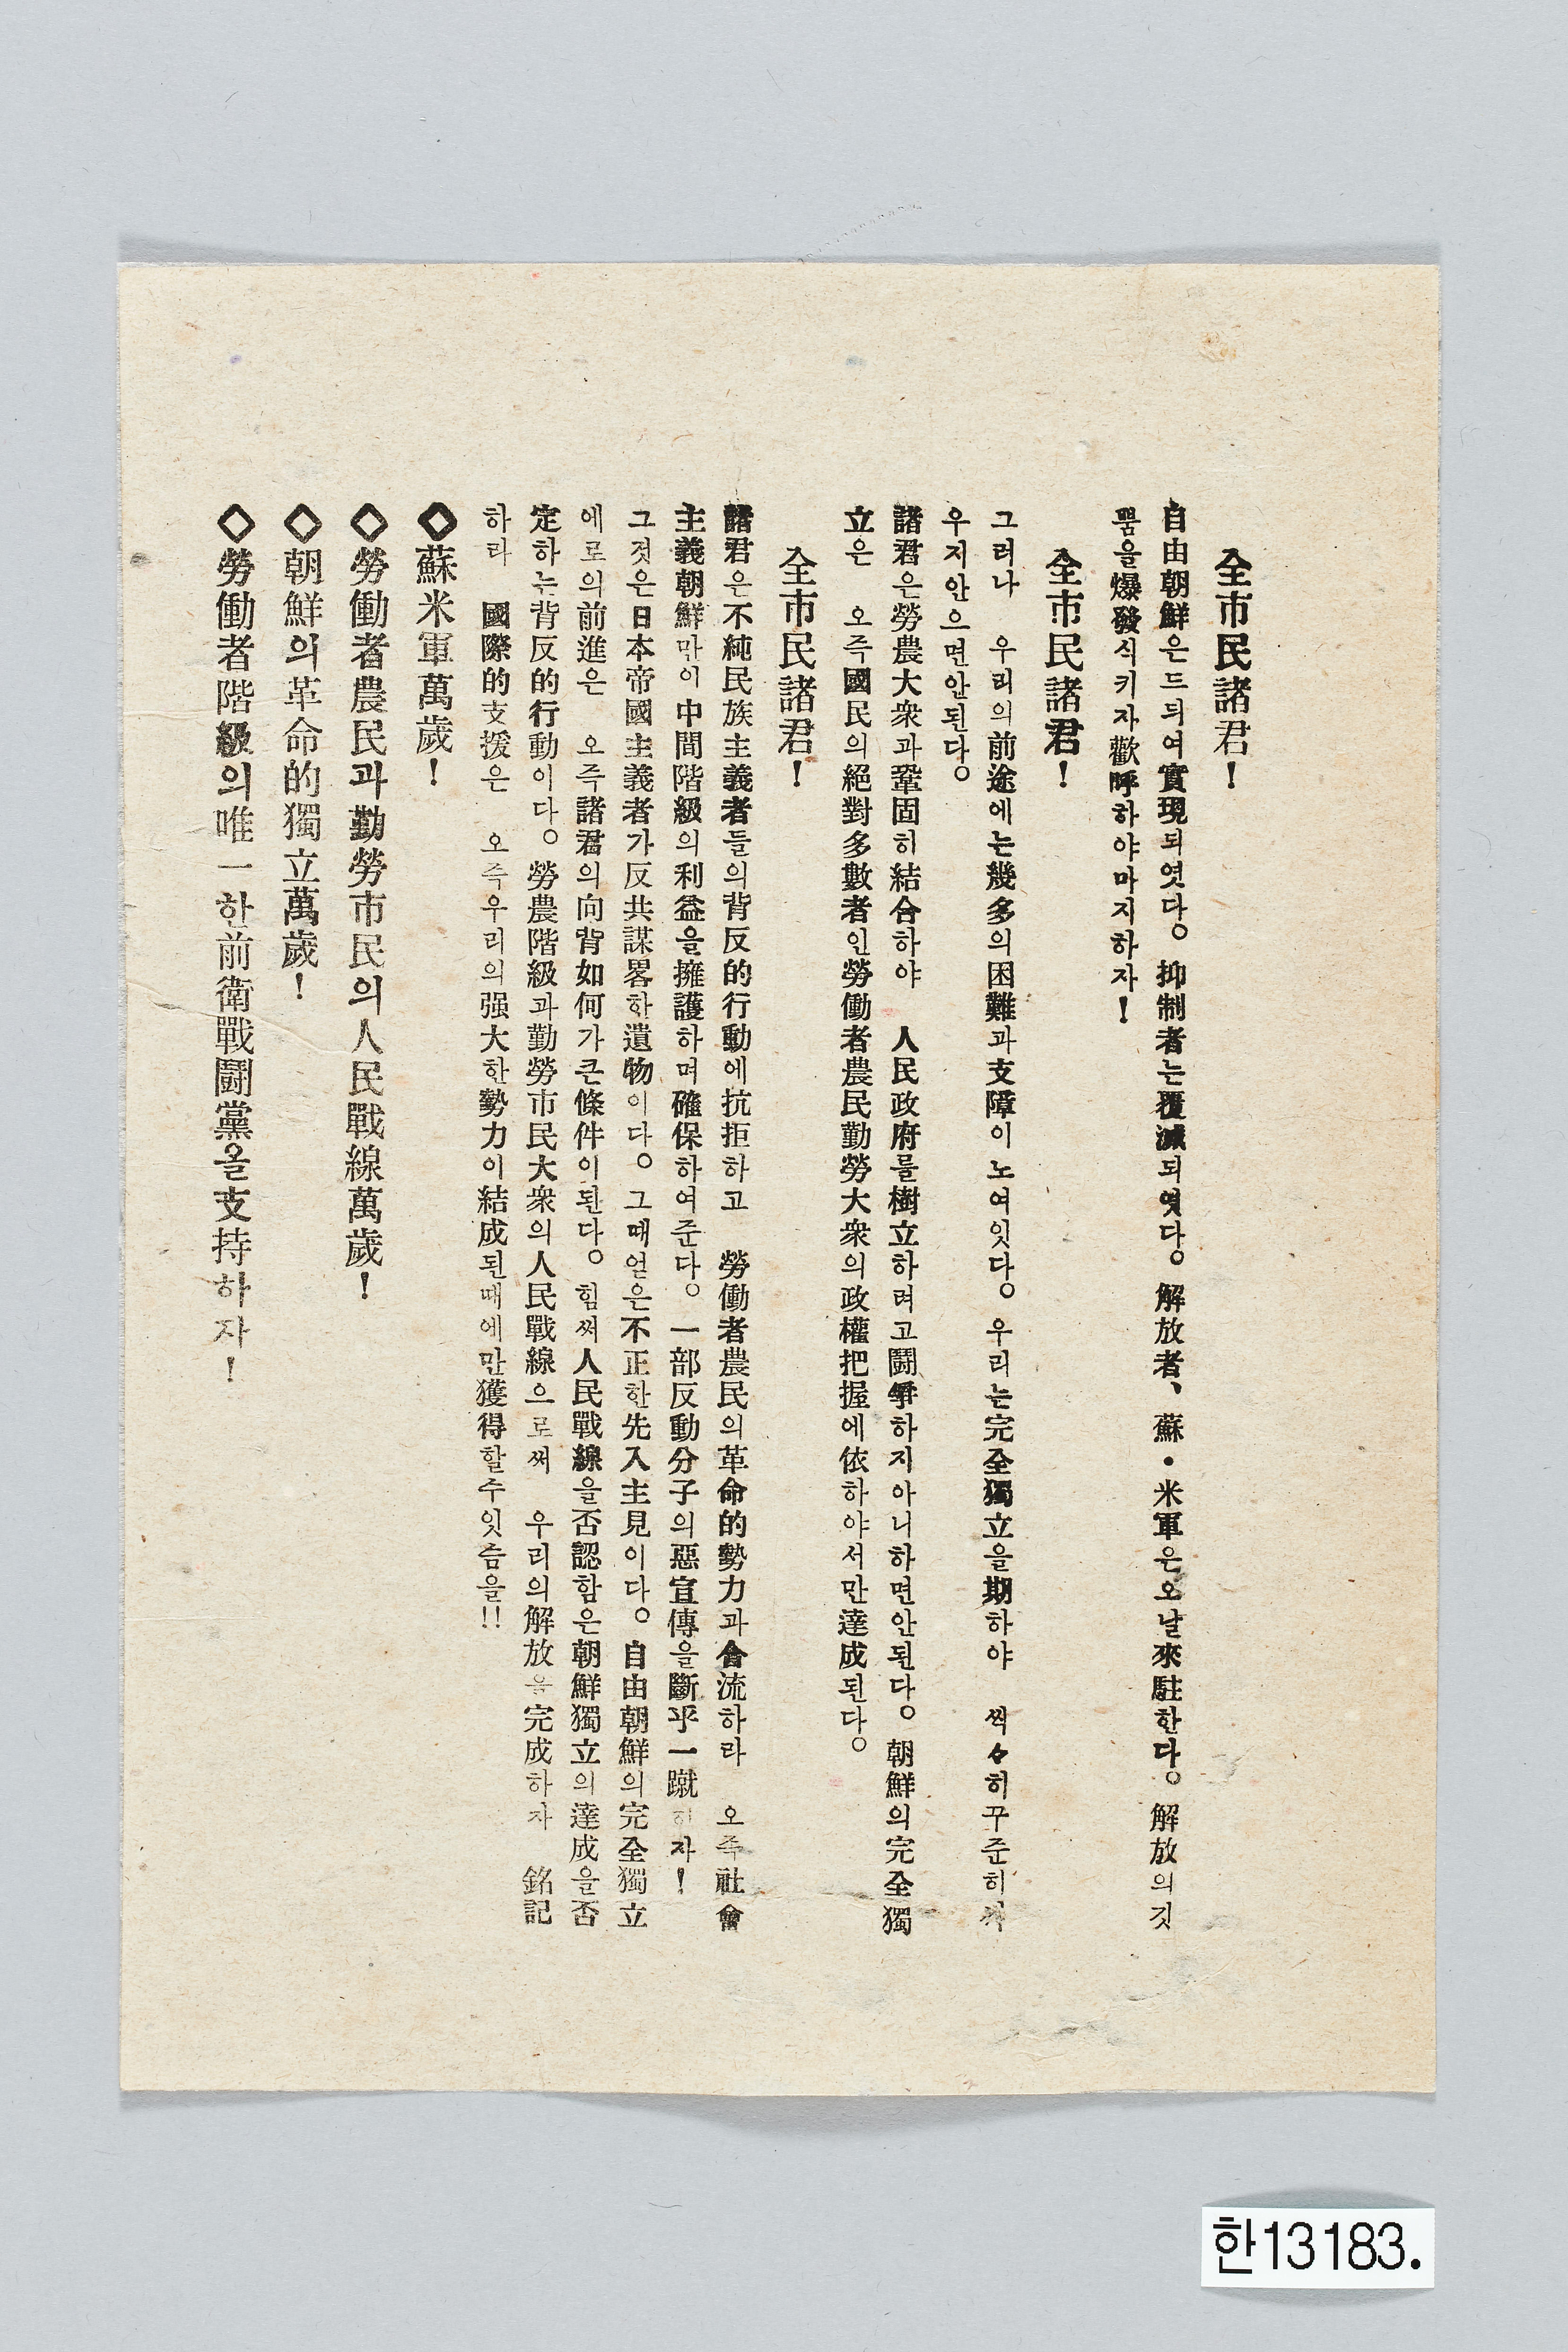 全市民諸君!
自由朝鮮은드듸여實現되엿다。抑制者는覆滅되엿다。解放者、蘇・米軍은오날來駐한다。解放의깃
뿜을爆發식키자歡呼하야마지하자!
全市民諸君!
그러나 우리의前途에는幾多의困難과支障이노여잇다。우리는完全獨立을期하야 씩々히꾸준히
우지안으면안된다。
諸君은勞農大衆과鞏固히結合하야 人民政府를樹立하려고鬪爭하지아니하면안된다。朝鮮의完全獨
立은 오즉國民의絕對多數者인勞働者農民勤勞大衆의政權把握에依하야서만達成된다。
全市民諸君!
諸君은不純民族主義者들의背反的行動에抗拒하고 勞働者農民의革命的勢力과合流하라 오즉社會
主義朝鮮만이中間階級의利益을擁護하며確保하여준다。一部反動分子의惡宣傳을斷乎一蹴히자!
그것은日本帝國主義者가反共謀畧한遺物이다。그때얻은不正한先入主見이다。自由朝鮮의完全獨立
에로의前進은 오즉諸君의向背如何가큰條件이된다。힘써人民戰線을否認함은朝鮮獨立의達成을否
定하는背反的行動이다。勞農階級과勤勞市民大衆의人民戰線으로써 우리의解放을完成하자 銘記
하라 國際的支援은 오즉우리의强大한勢力이結成된때에만獲得할수잇슴을!!
◇蘇米軍萬歲!
◇勞働者農民과勤勞市民의人民戰線萬歲!
◇朝鮮의革命的獨立萬歲!
◇勞働者階級의唯一한前衛戰鬪黨을支持하자!
한13183.